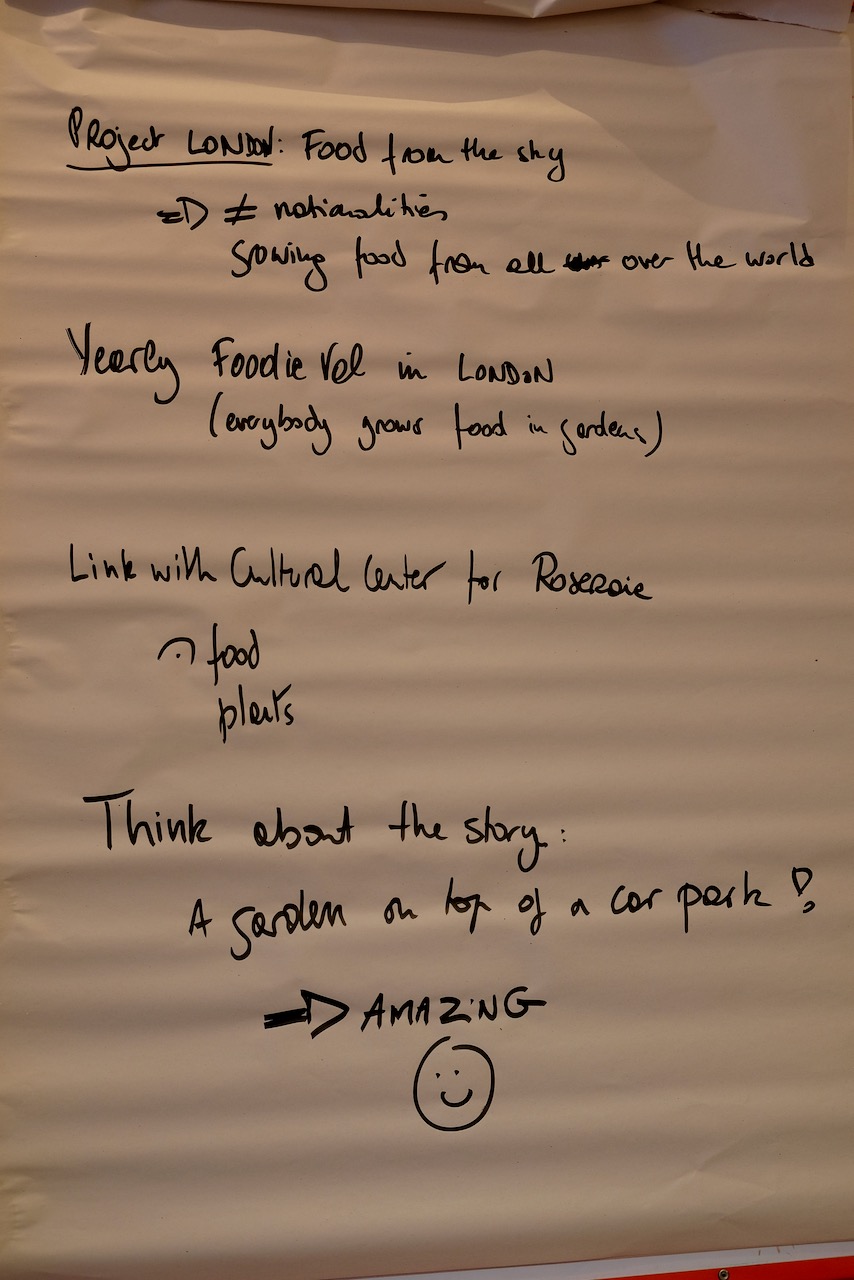 Project LONDON: Food from the sky
⇒ ≠ nationalities
growing food from all over the world
Yearly Foodie Val in LONDON
(everybody grows food in gardens)
Link with Cultural Center for
food
plants
Think about the story:
A garden on top of a car park !
⇒ AMAZING